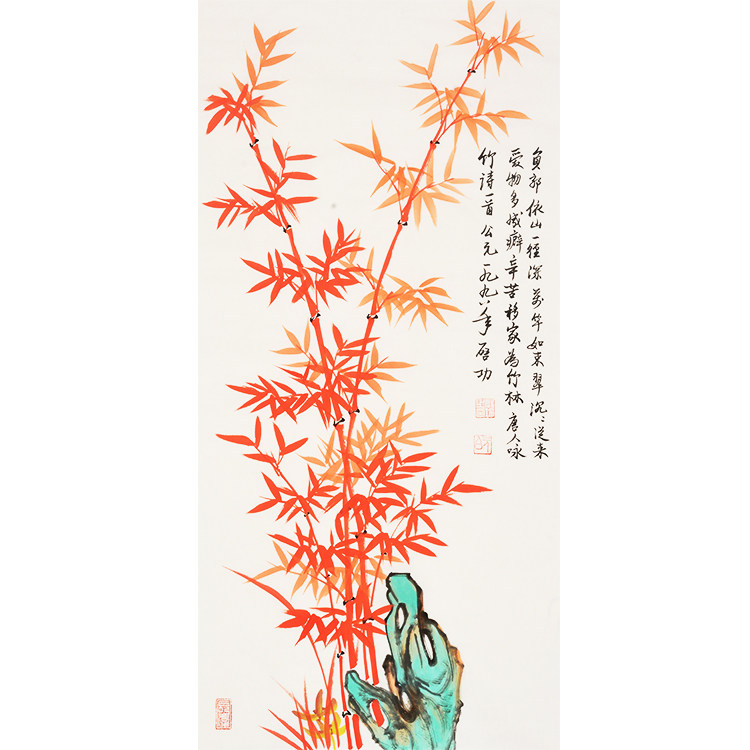 負郭依山一徑深萬竿如束翠沉〻從来
愛物多成癖辛苦移家為竹林唐人咏
竹詩一首公元一九九八年启功